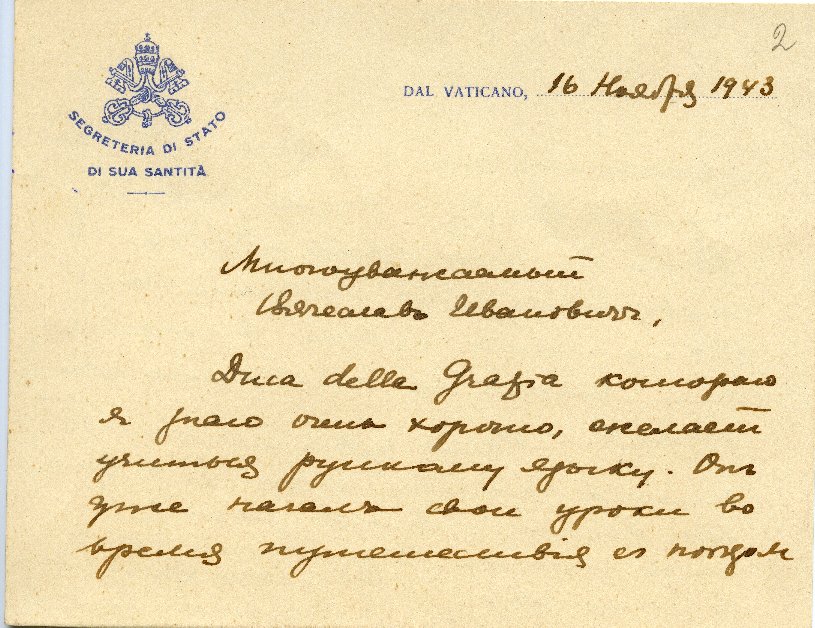 2
SEGRETERIA DI STATO
DI SUA SANTITÀ
DAL VATICANO, 16 Ноября 1943
Многоуважаемый
Вячеславъ Ивановичъ,
Duca della Grazia котораго
я знаю очень хорошо, желает
учиться русскому языку. Онъ
уже началъ свои уроки во
время путешествія съ